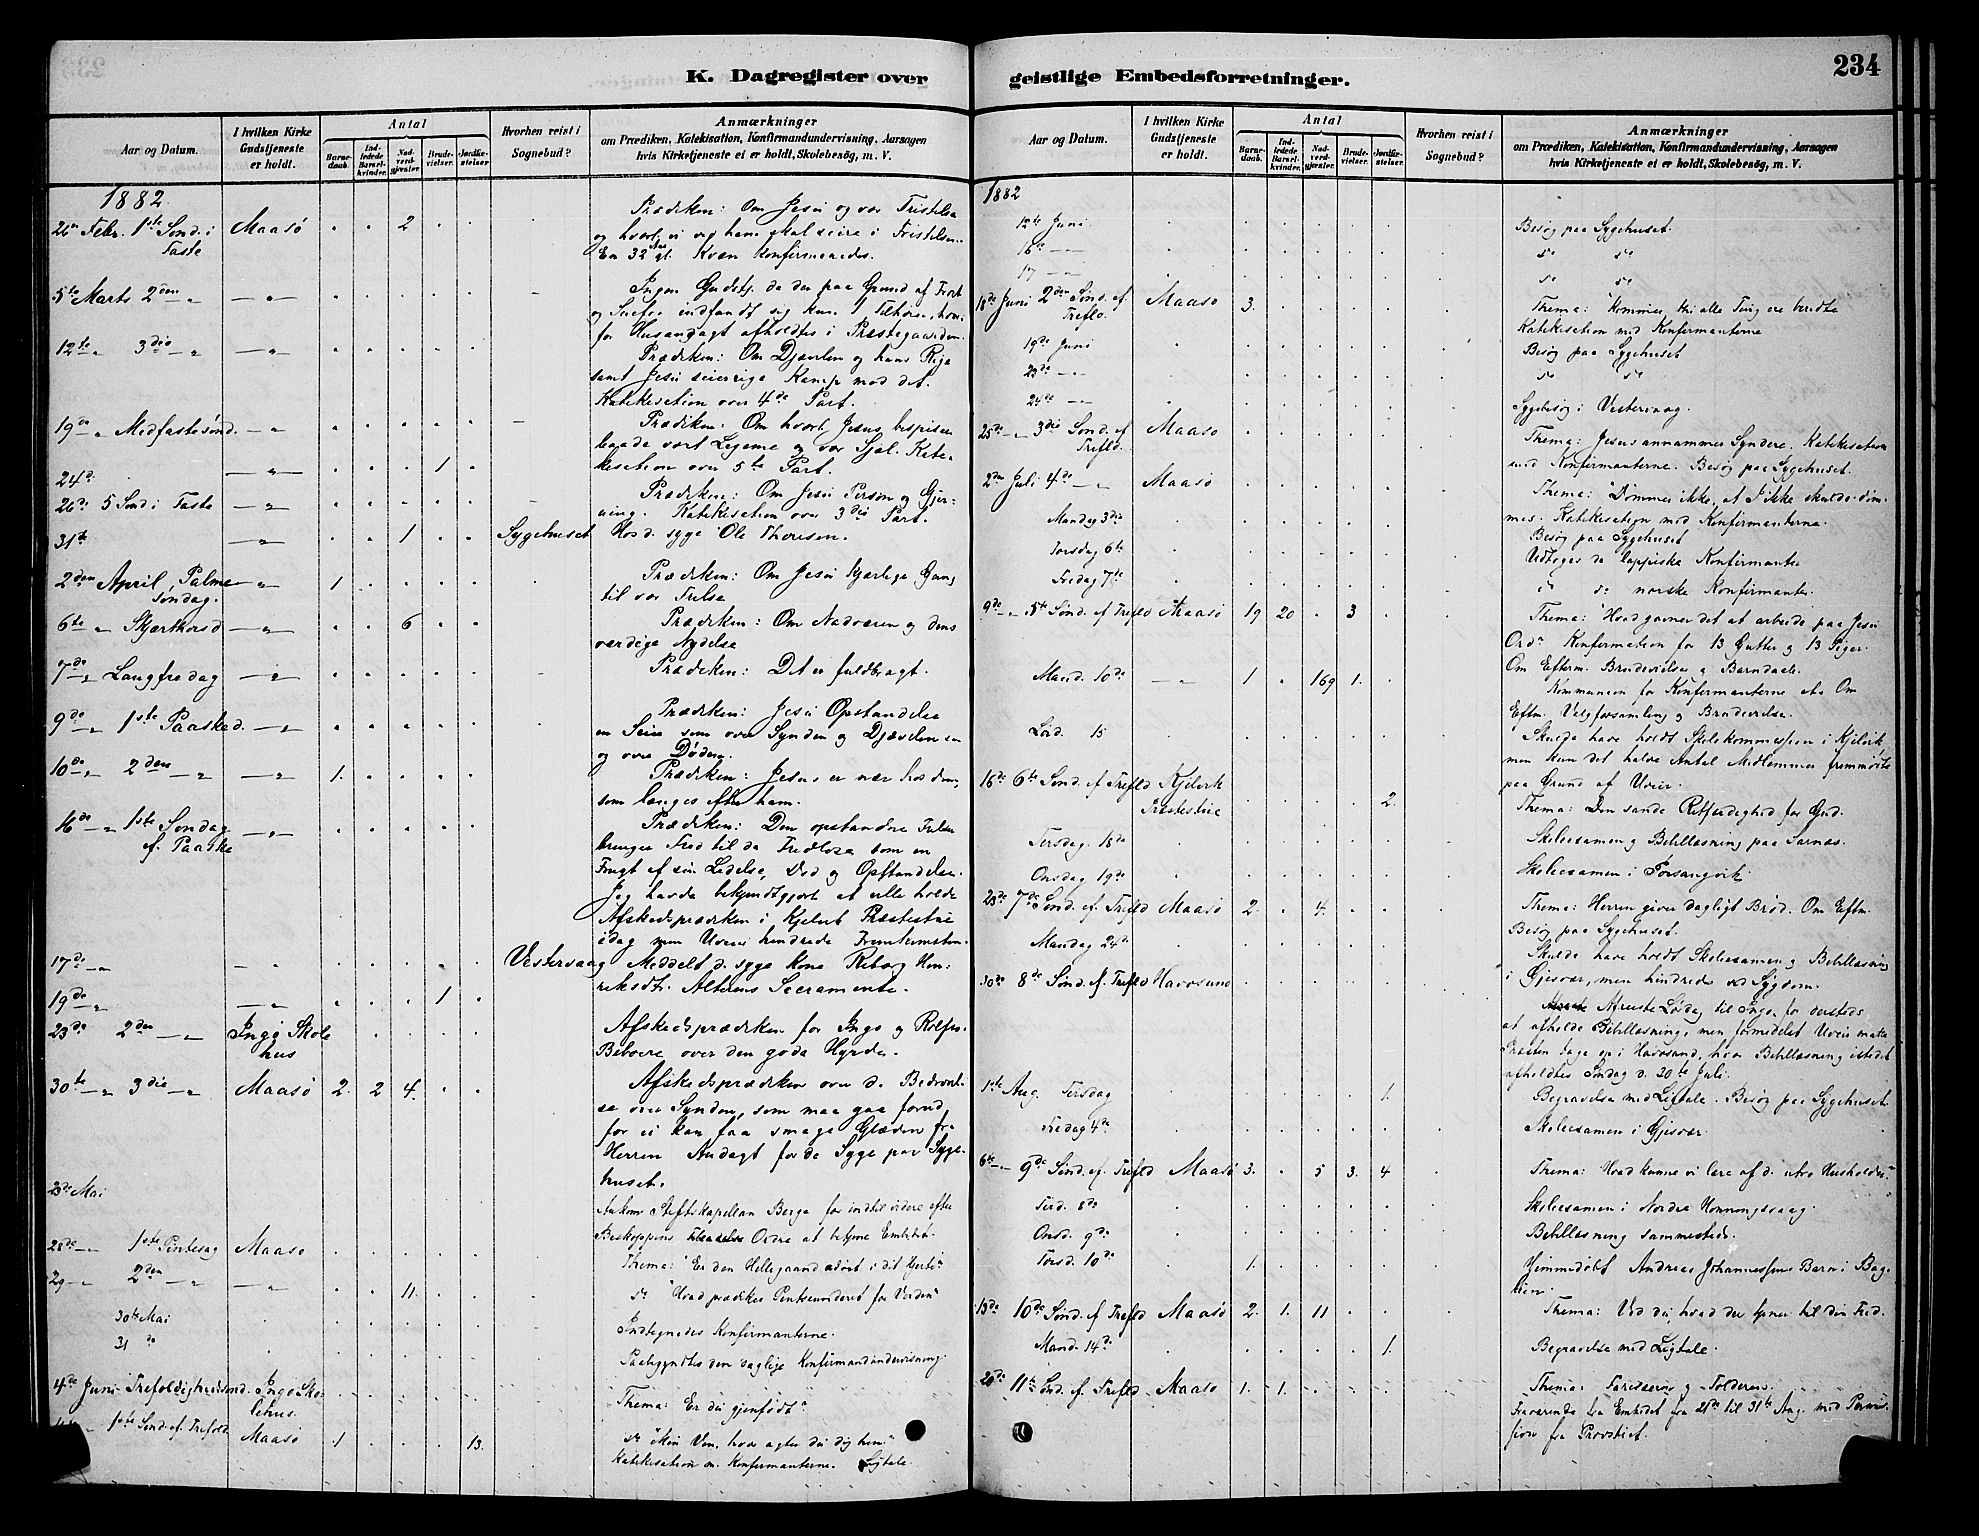 K. Dagregister over
Aar og Datum.
I hvilken Kirke Gudstjeneste er holdt.
Antal
Barnedaab.
Indledede Barselkvinder.
Nadverdgjester.
Brudevielser.
Jordfæstelser.
Hvorhen reist i Sognebud?
Anmærkninger
om Prædiken, Katekisation, Konfirmandundervisning, Aarsagen
hvis Kirketjeneste ei er holdt, Skolebesög, m. V.
1882.
26 Febr. 1ste Sønd. i Faste Maasø 2
Prædiken: Om Jesu og vor Fristelse
og hvorl. vi ved ham skal seire i Fristelsen.
En 32 Aar gl. Kvæn Konfirmeredes.
5te Marts 2den " — " —
Ingen Gudstj. da der paa Grund af Frost
og Snefog indfandt sig kun 1 Tilhører, hvor-
for Husandagt afholdtes i Præstegaarden.
12te " 3die — " — " —
Prædiken: Om Djævlen og hans Rige
samt Jesu seierrige Kamp mod det.
Katekisation over 4de Part.
19de " Midfastesønd. — " —
Prædiken: Om hvorl. Jesus bespiser
baade vort Legeme og vor Sjæl. Kate-
kisation over 5te Part.
24d. — " — 1
26de 5 Sønd i Faste — " —
Prædiken: Om Jesu Person og Gjer-
ning. Katekisation over 3die Part.
31te — " — 1 Sygehuset Hos d. syge Ole Thoresen.
2den April Palmesøndag. — " — 1
Prædiken: Om Jesu kjærlige Gang
til vor Frelse
6te " Skjærthorsd — " — 6
Prædiken: Om Nadveren og dens
værdige Nydelse
7de " Langfredag — " —
Prædiken: Det er fuldbragt.
9de " 1ste Paasked. — " —
Prædiken: Jesu Opstandelse
en Seier som over Synden og Djævelen saa
og over Døden.
10de " 2den — " — " — 1.
Prædiken: Jesus er nær hos dem,
som længes efter ham.
16de — " 1ste Søndag ef. Paaske — " —
Prædiken: Den opstandne Frelser
bringer Fred til de Fredløse som en
Frugt af sin Lidelse, Død og Opstandelse.
Jeg havde bekjendtgjort at ville holde
Afskedsprædiken i Kjelvik Præstestue
idag men Uveir hindrede Fremkomsten.
17de — " — Vestervaag Meddelt d. syge Kone Reborg Hen-
riksdtr. Alterens Sacramente.
19de — " — " — 1
23de 2den — " Ingø Skolehus
Afskedsprædiken for Ingø og Rolfsø-
Beboere over den gode Hyrde.
30te — " 3die — " Maasø 2. 2 4.
Afskedsprædiken over d. Bedrøvel-
se over Synden, som maa gaa forud
før vi kan faa smage Glæden fra
Herren Andagt for de Syge paa Syge-
huset.
23de Mai
Ankom Stiftskapellan Berge for indtil videre efter
Biskoppens Ordre at betjene Embedet.
28de — " 1ste Pintsedag Maasø
Thema: "Er den Helligaand udøst i dit Hjerte"
29 — " 2den — " — " — 11.
do "Hvad prædiker Pintseunderet for Verden"
30te Mai
Indtegnedes Konfirmanterne.
31 do
Paabegyndtes den daglige Konfirmandundervisning.
4de Juni Trefoldighedssønd. Ingø Skolehus.
Thema: Er du gjenfødt"
1ste Sønd. ef. Trefold. Maasø 1 13.
do "Min Ven, hvor agter du dig hen."
Katekisation m. Konfirmanterne. Ligtale.
geistlige Embedsforretninger.
234
Aar og Datum.
I hvilken Kirke Gudstjeneste er holdt.
Antal
Barnedaab.
Indledede Barselkvinder.
Nadverdgjester.
Brudevielser.
Jordfæstelser.
Hvorhen reist i Sognebud?
Anmærkninger
om Prædiken, Katekisation, Konfirmandundervisning, Aarsagen
hvis Kirketjeneste ei er holdt, Skolebesög, m. V.
1882
12te Juni Besøg paa Sygehuset.
16de — " — do do
17 — " — do do
18de Juni 2den Sønd. ef. Trefld. Maasø 3.
Thema: "Kommer, thi alle Ting ere beredte
Katekisation med Konfirmanterne
19de Juni Besøg paa Sygehuset
23de — " — do do
24de — " — Sygebesøg i Vestervaag.
25de — " — 3die Sønd. ef Trefld. Maasø
Thema: Jesus annammer Syndere. Katekisation
med Konfirmanterne. Besøg paa Sygehuset.
2den Juli 4de — " — Maasø
Thema: "Dømmer ikke, at I ikke skulde døm-
mes. Katekisation med Konfirmanterne.
Mandag 3die Besøg paa Sygehuset
Torsdag 6te Udtoges de lappiske Konfirmanter
Fredag 7de do norske Konfirmanter.
9de — " — 5te Sønd. ef Trefld Maasø 19 20 . 3
Thema: "Hvad gavner det at arbeide paa Jesu
Ord" Konfirmation for 13 Gutter og 13 Piger.
Om Efterm. Brudevielse og Barnedaab.
Mand. 10de — " — 1 . 169 1.
Kommunion for Konfirmanterne etc Om
Eftm. Valgforsamling og Brudevielse.
Lørd. 15
Skulde have holdt Skolekommission i Kjelvik,
men kun det halve Antal Medlemmer fremmødte
paa Grund af Uveir.
16de 6te Sønd. ef Trefld Kjelvik Præstestue 2.
Thema: Den sande Retferdighed for Gud.
Tirsdag 18de Skoleexamen og Bibellæsning paa Sarnæs.
Onsdag 19de Skoleexamen i Porsangvik
23de 7de Sønd. ef. Trefld Maasø 2. . 4.
Thema: Herren giver dagligt Brød. Om Eftm.
Besøg paa Sygehuset.
Mandag 24de
Skulde have holdt Skoleexamen og Bibellæsning
i Gjesvær, men hindredes ved Sygdom.
30de 8de Sønd. ef. Trefld Havøsund
Afreiste Lørdag til Ingø for dersteds
at afholde Bibellæsning, men formedelst Uveir maatte
Præsten tage op i Havøsund, hvor Bibellæsning istedet
afholdtes Søndag d. 30te Juli.
1ste Aug. Tirsdag 1.
Begravelse med Ligtale. Besøg paa Sygehuset
Fredag 4de Skoleexamen i Gjesvær.
6te — " — 9de Sønd. ef. Trefld Maasø 3. . 5 3. 4
Thema: Hvad kunne vi lære af d. utro Husholder"
Tird. 8de Skoleexamen i Nordre Honningsvaag.
Onsd. 9de Bibellæsning sammesteds.
Torsd. 10de 1.
Hjemmedøbt Andreas Johannessens Barn i
13de 10de Sønd. ef Trefld Maasø 2. 1. 11
Thema: Ved du, hvad der tjener til din Fred.
Mand. 14de 1. Begravelse med Ligtale.
20de 11te Sønd. ef. Trefld. Maasø 1. 1.
Thema: Farisæeren og Tolderen.
Fraværende fra Embedet fra 21de til 31te Aug. med Permis-
sion fra Provstiet.